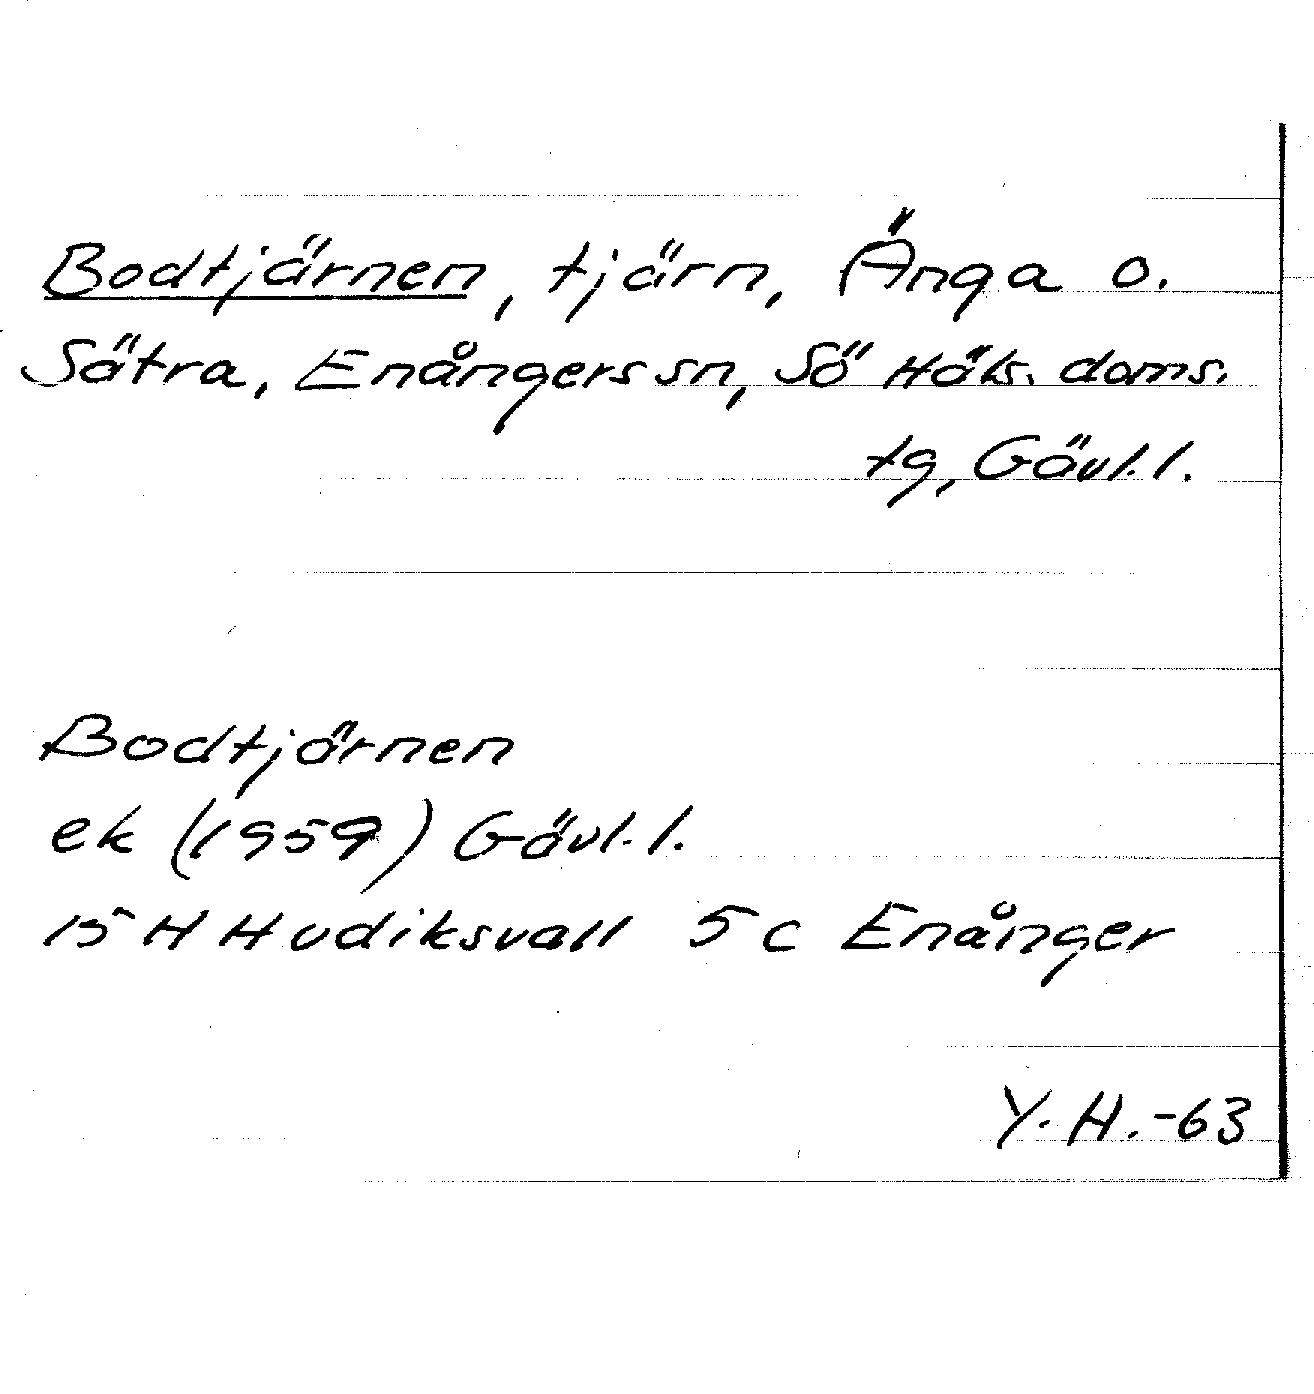 Bodtjärnen, tjärn, Änga o.
Sätra, Enångers sn, Sö Häls. doms.
tg, Gävl. l.
Bodtjärnen
ek (1959) Gävl. l.
15 H Hudiksvall 5 c Enånger
Y. H. -63